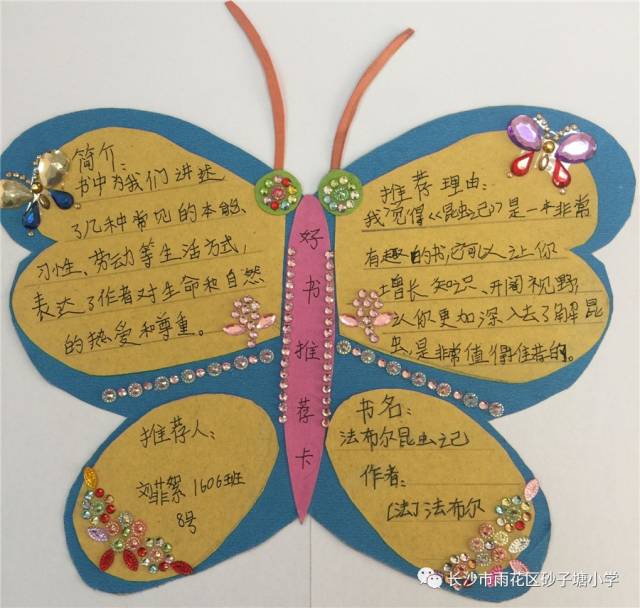 简介:
书中为我们讲述
了几种常见的本能、
习性、劳动等生活方式,
表达了作者对生命和自然
的热爱和尊重。
好书推荐卡
推荐理由:
我觉得《昆虫记》是一本非常
有趣的书,它可以让你
增长知识、开阔视野,
让你更加深入去了解昆
虫,是非常值得推荐的。
推荐人:
刘菲絮 1606班
8号
书名:
法布尔昆虫记
作者:
[法]法布尔
长沙市雨花区砂子塘小学